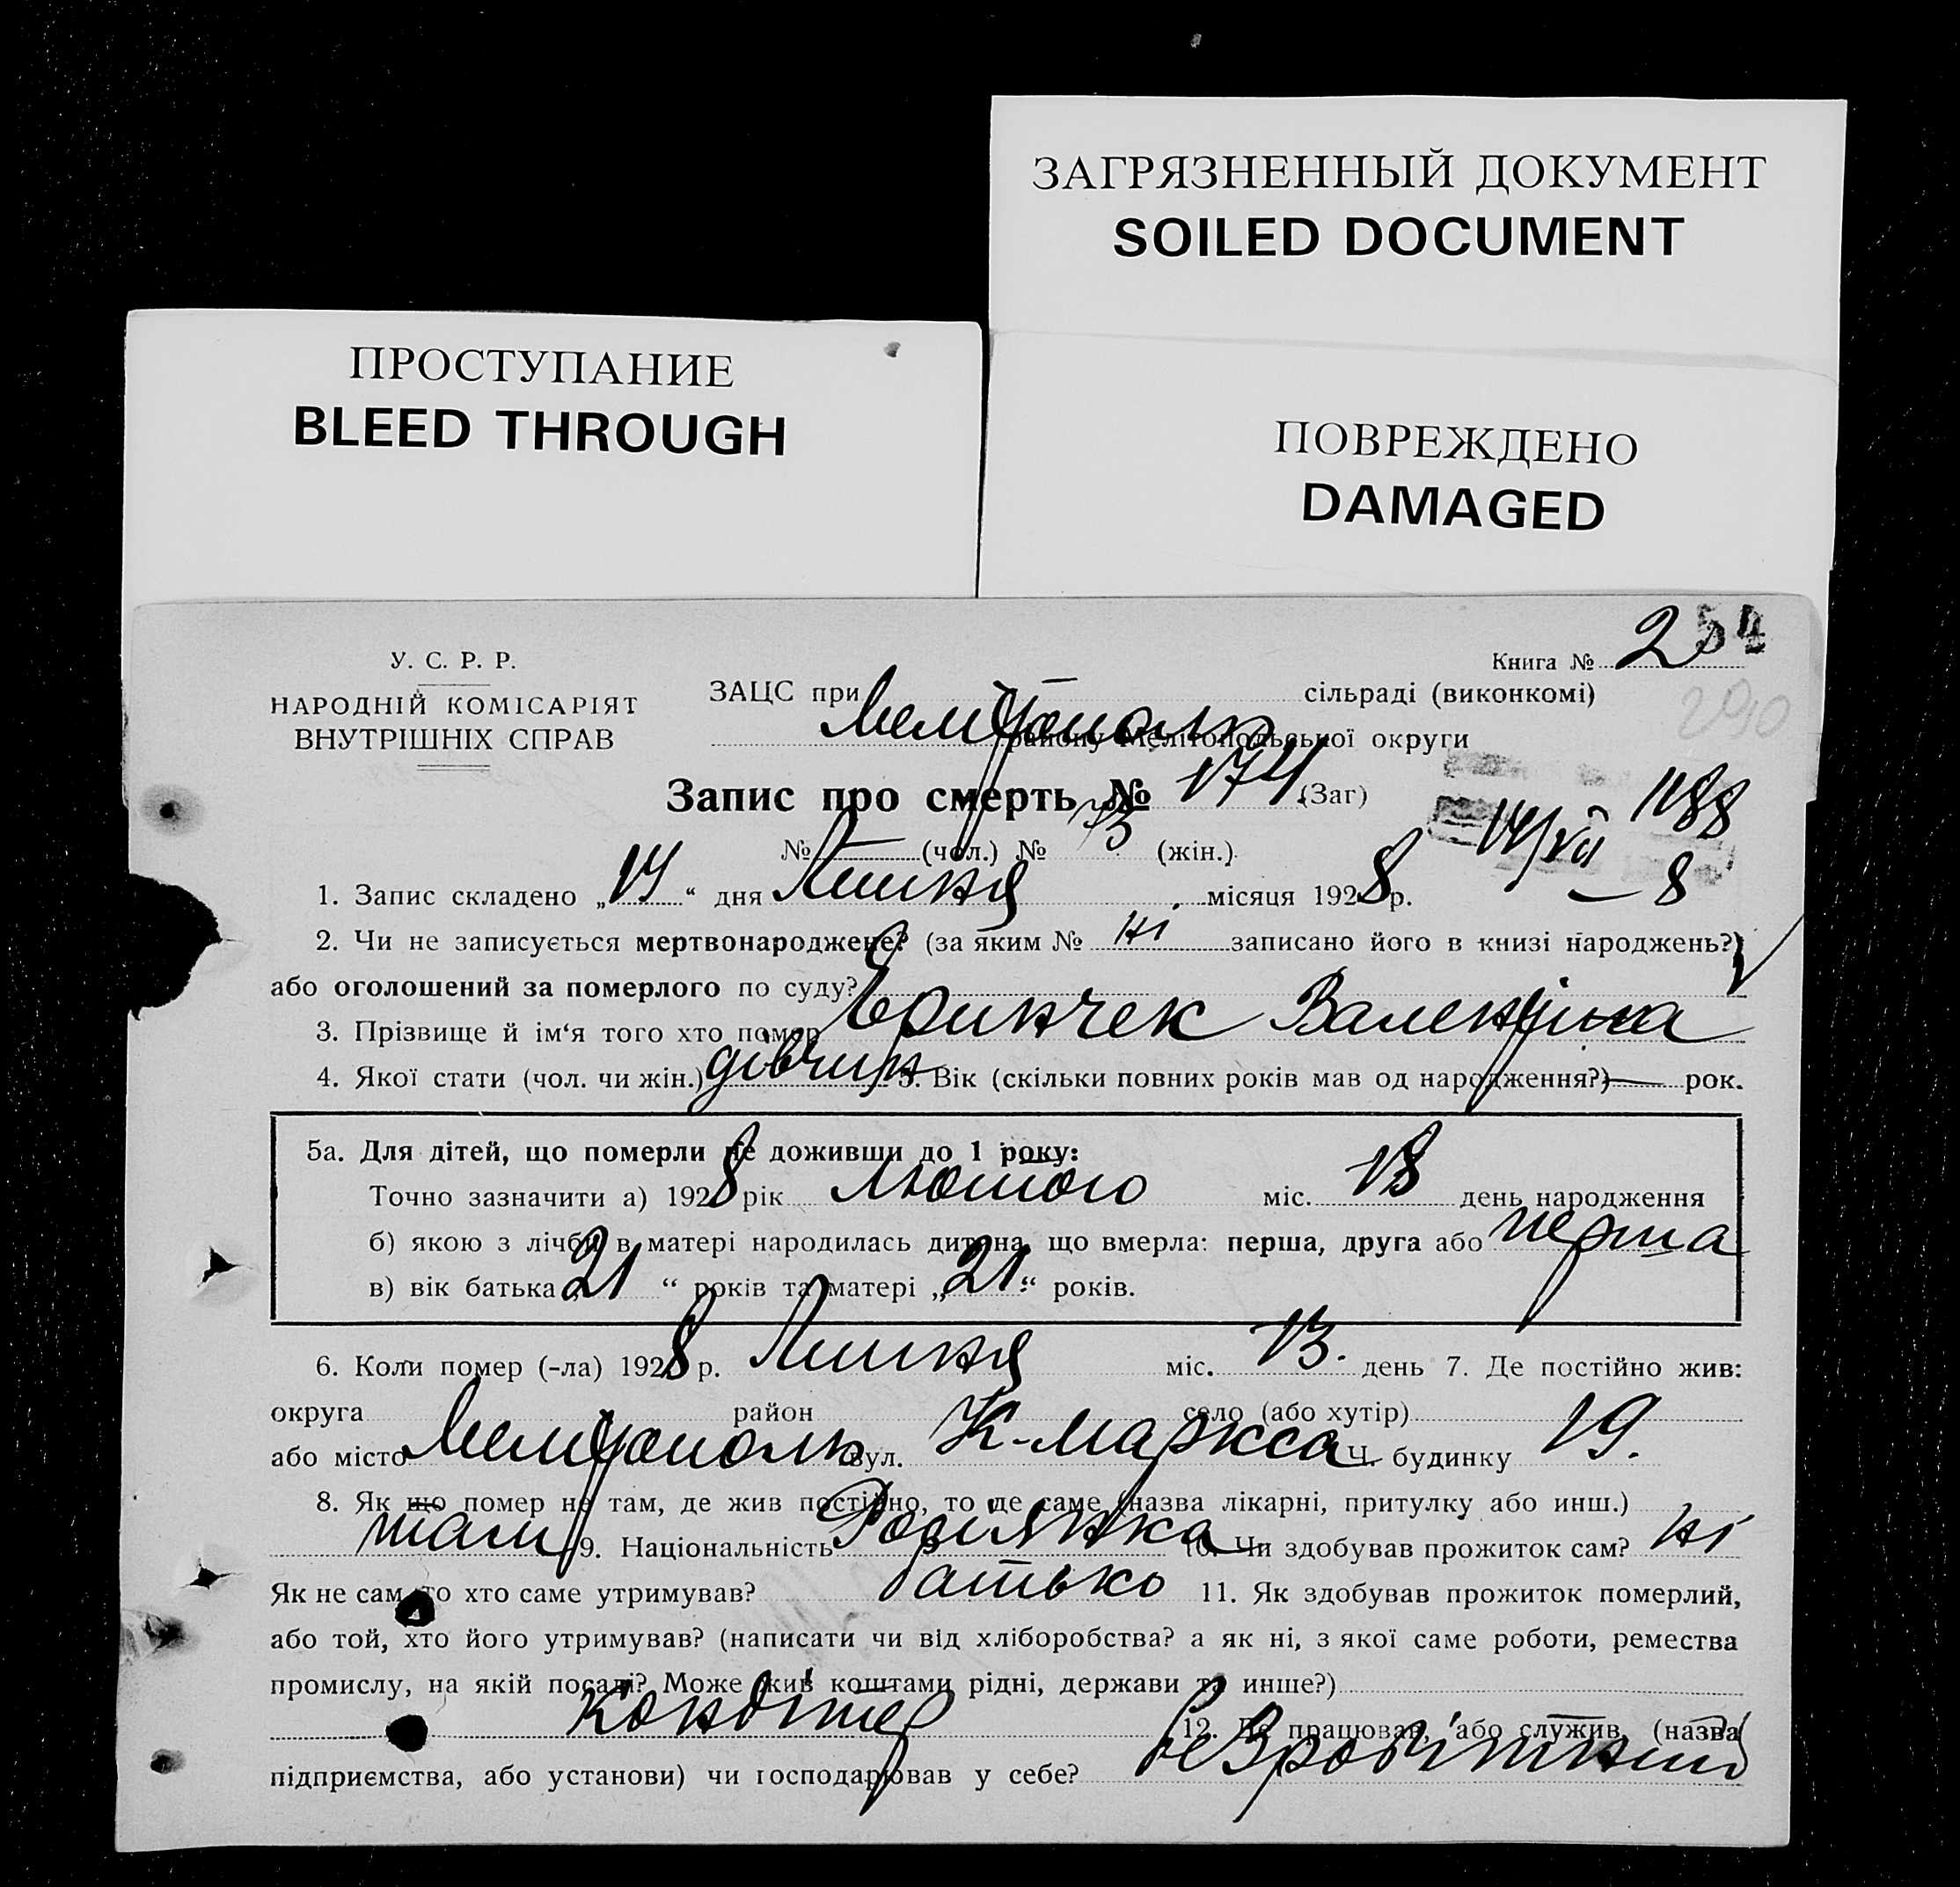 ЗАГРЯЗНЕННЫЙ ДОКУМЕНТ
SOILED DOCUMENT
ПРОСТУПАНИЕ
BLEED THROUGH
ПОВРЕЖДЕНО
DAMAGED
У. С. Р. Р.
НАРОДНІЙ КОМІСАРІЯТ
ВНУТРІШНІХ СПРАВ
Книга № 2
54
290
ЗАЦС при Мелітополь сільраді (виконкомі)
району Мелітопольської округи
Запис про смерть № 174 (Заг)
1188
№ — (чол.) № 73 (жін.)
14/VII – 8
1. Запис складено „14“ дня Липня місяця 1928 р.
2. Чи не записується мертвонароджене? (за яким № ні записано його в книзі народжень?)
або оголошений за померлого по суду?
3. Прізвище й ім‘я того хто помер Валентіна
4. Якої стати (чол. чи жін.) дівчин 5. Вік (скільки повних років мав од народження?) — рок.
5а. Для дітей, що померли не доживши до 1 року:
Точно зазначити а) 1928 рік Лютого міс. 18 день народження
б) якою з лічби в матері народилась дитина, що вмерла: перша, друга або перша
в) вік батька „21“ років та матері „21“ років.
6. Коли помер (-ла) 1928 р. Липня міс. 13. день 7. Де постійно жив:
округа район село (або хутір)
або місто Мелітополь вул. К-Маркса Ч. будинку 19.
8. Як що помер не там, де жив постійно, то де саме (назва лікарні, притулку або инш.)
там 9. Національність 10. Чи здобував прожиток сам? ні
Як не сам, то хто саме утримував? батько 11. Як здобував прожиток померлий,
або той, хто його утримував? (написати чи від хліборобства? а як ні, з якої саме роботи, ремества
промислу, на якій посаді? Може жив коштами рідні, держави то инше?)
12. Де працював, або служив, (назва
підприємства, або установи) чи господарював у себе? безробітний